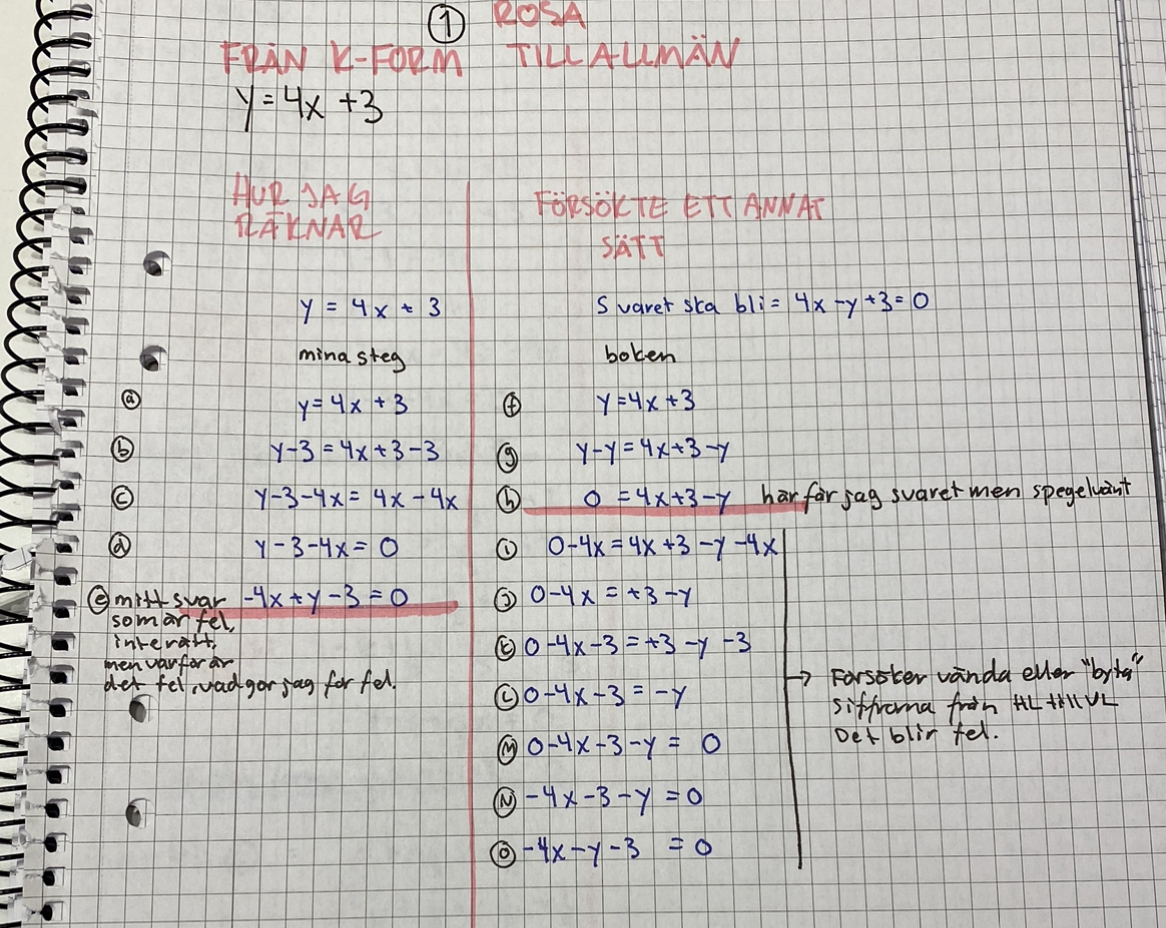 ① ROSA
FRÅN K-FORM TILL ALLMÄN
y=4x +3
HUR JAG
RÄKNAR
y = 4x + 3
mina steg
ⓐ y= 4x +3
ⓑ y-3 = 4x+3-3
ⓒ y-3-4x= 4x-4x
ⓓ y-3-4x= 0
ⓔ mitt svar -4x+y-3=0
som är fel,
inte rätt,
men varför är
det fel, vad gör jag för fel.
FÖRSÖKTE ETT ANNAT
SÄTT
Svaret ska bli= 4x-y+3=0
boken
ⓕ y=4x+3
ⓖ y-y=4x+3-y
ⓗ 0 =4x+3-y här får jag svaret men spegelvänt
ⓘ 0-4x=4x+3-y-4x
ⓙ 0-4x = +3-y
ⓚ 0-4x-3=+3-y-3
Ⓛ 0-4x-3= -y
Ⓜ 0-4x-3-y = 0
Ⓝ -4x-3-y =0
Ⓞ -4x-y-3 =0
→ Försöker vända eller "byta"
siffrorna från HL till VL
Det blir fel.